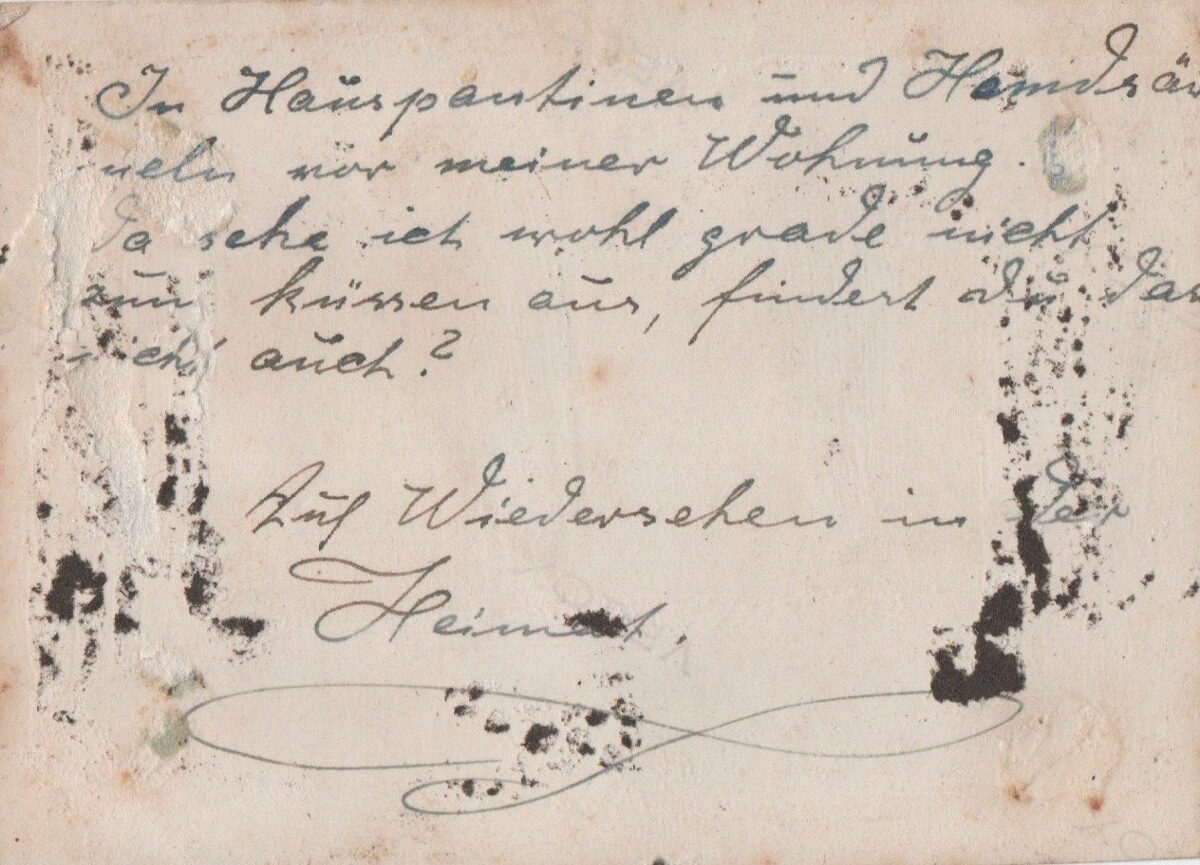 In Hauspantinen und Hemdsär
meln vor meiner Wohnung.
Da sehe ich wohl grade nicht
zum küssen aus, findest du das
nicht auch?
Auf Wiedersehen in der
Heimat.